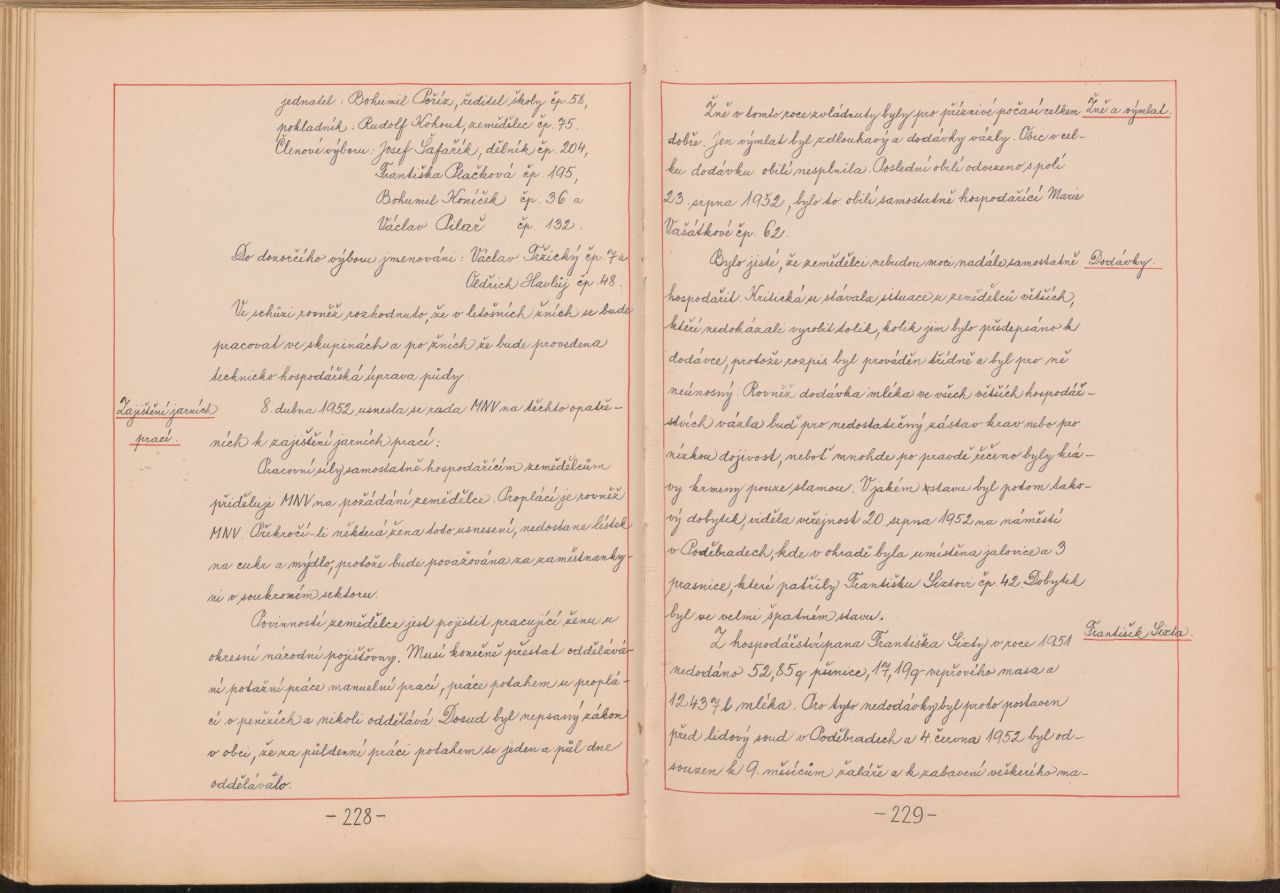 jednatel: Bohumil Poříz, ředitel školy čp. 58,
pokladník: Rudolf Kohout, zemědělec čp. 75.
Členové výboru: Josef Šafařík, dělník čp. 204,
Františka Plačková čp. 195,
Bohumil Koníček čp. 36 a
Václav Pilař čp. 132.
Do dozorčího výboru jmenováni: Václav Tržický čp. 7 a
Oldřich Havlůj čp. 48.
Ve schůzi rovněž rozhodnuto, že v letošních žních se bude
pracovat ve skupinách a po žních že bude provedena
technicko hospodářská úprava půdy.
Zajištění jarních
prací.
8. dubna 1952 usnesla se rada MNV na těchto opatře-
ních k zajištění jarních prací:
Pracovní síly samostatně hospodařícím zemědělcům
přiděluje MNV na požádání zemědělce. Proplácí je rovněž
MNV. Překročí-li některá žena toto usnesení, nedostane lístek
na cukr a mýdlo, protože bude považována za zaměstnanky-
ni v soukromém sektoru.
Povinností zemědělce jest pojistit pracující ženu u
okresní národní pojišťovny. Musí konečně přestat oddělává-
ní potažní práce manuelní prací, práce potahem se proplá-
cí v penězích a nikoli oddělává. Dosud byl nepsaný zákon
v obci, že za půldenní práci potahem se jeden a půl dne
oddělávalo.
-228-
Žně a výmlat.
Žně v tomto roce zvládnuty byly pro příznivé počasí celkem
dobře. Jen výmlat byl zdlouhavý a dodávky vázly. Obec v cel-
ku dodávku obilí nesplnila. Poslední obilí odvezeno s polí
23 srpna 1952, bylo to obilí samostatně hospodařící Marie
Vašátkové čp. 62.
Dodávky.
Bylo jisté, že zemědělci nebudou moci nadále samostatně
hospodařit. Kritická se stávala situace u zemědělců větších,
kteří nedokázali vyrobit tolik, kolik jim bylo předepsáno k
dodávce, protože rozpis byl prováděn třídně a byl pro ně
neúnosný. Rovněž dodávka mléka ve všech větších hospodář-
stvích vázla buď pro nedostatečný zástav krav nebo pro
nízkou dojivost, neboť mnohde po pravdě řečeno byly krá-
vy krmeny pouze slamou. V jakém stavu byl potom tako-
vý dobytek, viděla veřejnost 20 srpna 1952 na náměstí
v Poděbradech, kde v ohradě byla umístěna jalovice a 3
prasnice, které patřily Františku Sixtovi čp. 42. Dobytek
byl ve velmi špatném stavu.
František Sixta.
Z hospodářství pana Františka Sixty v roce 1951
nedodáno 52,85q pšenice, 17,19q vepřového masa a
12437 l mléka. Pro tyto nedodávky byl proto postaven
před lidový soud v Poděbradech a 4. června 1952 byl od-
souzen k 9. měsícům žaláře a k zabavení veškerého ma-
-229-